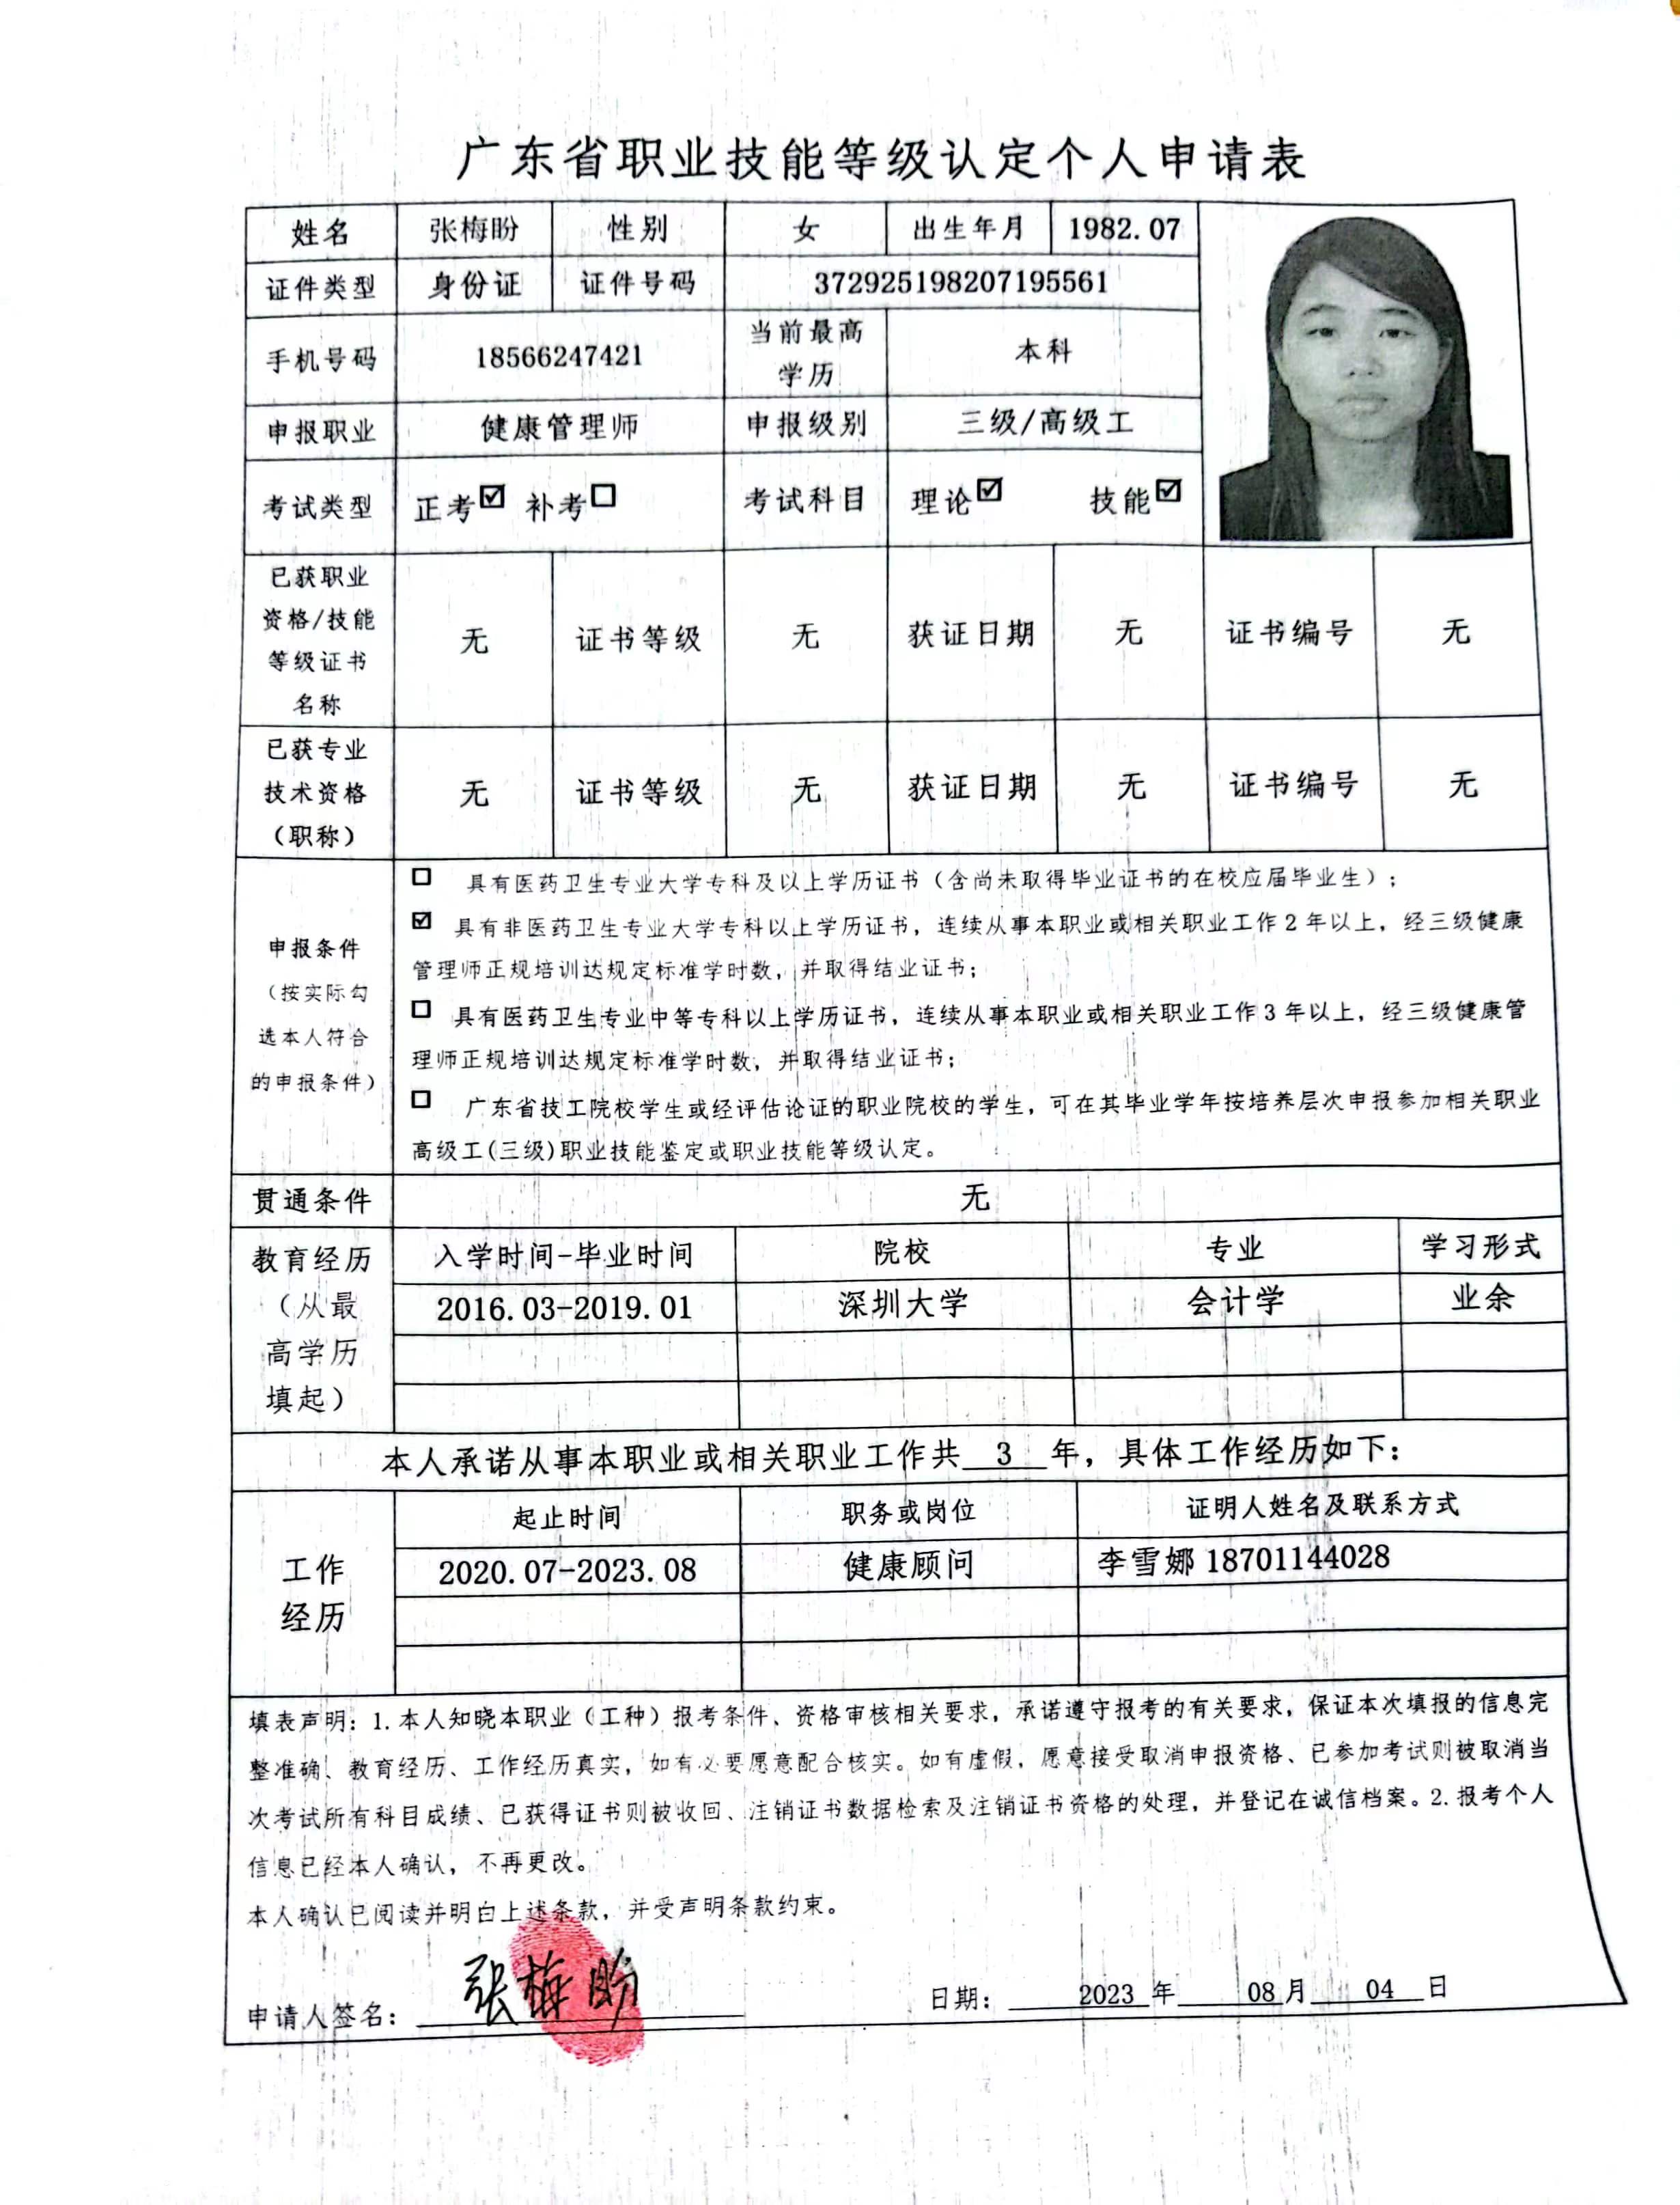 广东省职业技能等级认定个人申请表
姓名 张梅盼 性别 女 出生年月 1982.07
证件类型 身份证 证件号码 372925198207195561
手机号码 18566247421 当前最高学历 本科
申报职业 健康管理师 申报级别 三级/高级工
考试类型 正考☑ 补考☐ 考试科目 理论☑ 技能☑
已获职业资格/技能等级证书名称 无 证书等级 无 获证日期 无 证书编号 无
已获专业技术资格（职称） 无 证书等级 无 获证日期 无 证书编号 无
申报条件（按实际勾选本人符合的申报条件）
☐ 具有医药卫生专业大学专科及以上学历证书（含尚未取得毕业证书的在校应届毕业生）；
☑ 具有非医药卫生专业大学专科以上学历证书，连续从事本职业或相关职业工作2年以上，经三级健康
管理师正规培训达规定标准学时数，并取得结业证书；
☐ 具有医药卫生专业中等专科以上学历证书，连续从事本职业或相关职业工作3年以上，经三级健康管
理师正规培训达规定标准学时数，并取得结业证书；
☐ 广东省技工院校学生或经评估论证的职业院校的学生，可在其毕业学年按培养层次申报参加相关职业
高级工(三级)职业技能鉴定或职业技能等级认定。
贯通条件 无
教育经历（从最高学历填起）
入学时间-毕业时间 院校 专业 学习形式
2016.03-2019.01 深圳大学 会计学 业余
本人承诺从事本职业或相关职业工作共 3 年，具体工作经历如下：
工作经历
起止时间 职务或岗位 证明人姓名及联系方式
2020.07-2023.08 健康顾问 李雪娜 18701144028
填表声明：1.本人知晓本职业（工种）报考条件、资格审核相关要求，承诺遵守报考的有关要求，保证本次填报的信息完
整准确、教育经历、工作经历真实，如有必要愿意配合核实。如有虚假，愿意接受取消申报资格、已参加考试则被取消当
次考试所有科目成绩、已获得证书则被收回、注销证书数据检索及注销证书资格的处理，并登记在诚信档案。2.报考个人
信息已经本人确认，不再更改。
本人确认已阅读并明白上述条款，并受声明条款约束。
申请人签名：张梅盼 日期：2023年08月04日